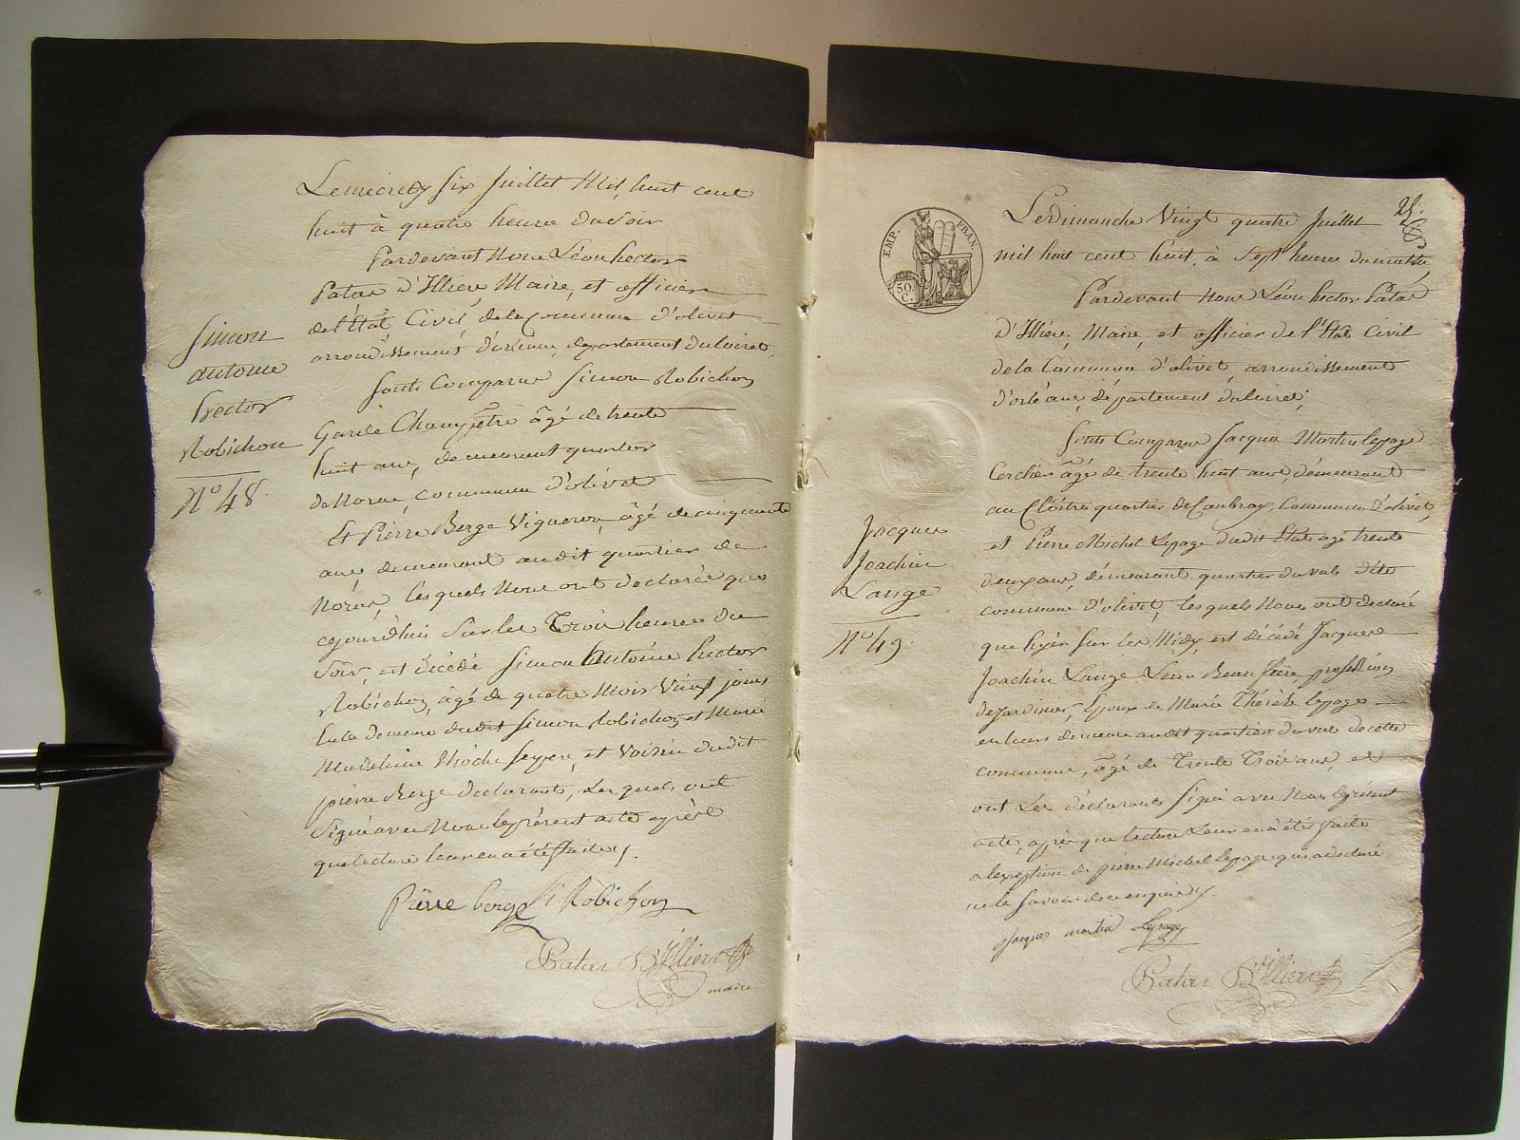 Le mercredy six Juillet Mil huit cent
huit à quatre heure du soir
Pardevant Nous Léon hector
Patas d'Illiers, Maire, et officier
de l'Etat Civil de la Commune d'olivet
arrondissement d'orleans, departement du loiret,
Sont Comparus Simon Robichon
Garde Champetre âgé de trente
huit ans, demeurant quartier
de Noras, commune d'olivet
Et Pierre Berge Vigneron, âgé de cinquante
ans demeurant audit quartier de
Noras, lesquels Nous ont declarée que
cejourdhui sur les Trois heures du
Soir, est décédé Simon Antoine hector
Robichon, âgé de quatre Mois Vingt jours
en la demeure dudit Simon Robichon et Marie
Madeleine
et Voisin dudit
pierre Berge declarants, Les quels ont
Signé avec Nous le présent acte après
que lecture leur en a été faite.
Simon
antoine
hector
Robichon
N.o 48.
Pierre berge S. Robichon
Patas D'Illiers
maire
25.
EMP. FRAN.
50. C.
Le Dimanche Vingt quatre Juillet
mil huit cent huit, à Sept heures du matin,
Pardevant Nous Léon hector Patas
D'Illiers, Maire, et officier de l'Etat Civil
de la Commune d'olivet, arrondissement
d'orléans, département du loiret,
Sont Comparus Jacques Martin lepage
Cerclier âgé de trente huit ans, demeurant
au Cloître quartier de Caubray, Commune d'olivet,
et Pierre Michel Lepage dudit Etat agé trente
deux ans, demeurant quartier du val dite
commune d'olivet, lesquels Nous ont declaré
que hyer sur les Midy, est décédé Jacques
Joachin Lange Leur Beau frère, proffession
de Jardinier, Epoux de Marie Thérèse lepage
en leurs demeure audit quartier du val de cette
commune, âgé de Trente Trois ans, et
ont Les déclarants Signé avec Nous le présent
acte, après que lecture Leur en a été faite
a l'exeption de pierre Michel lepage qui a déclaré
ne le savoir de ce enquis.
Jacques
Joachin
Lange
N.o 49.
Jacques martin lepage
Patas D'Illiers